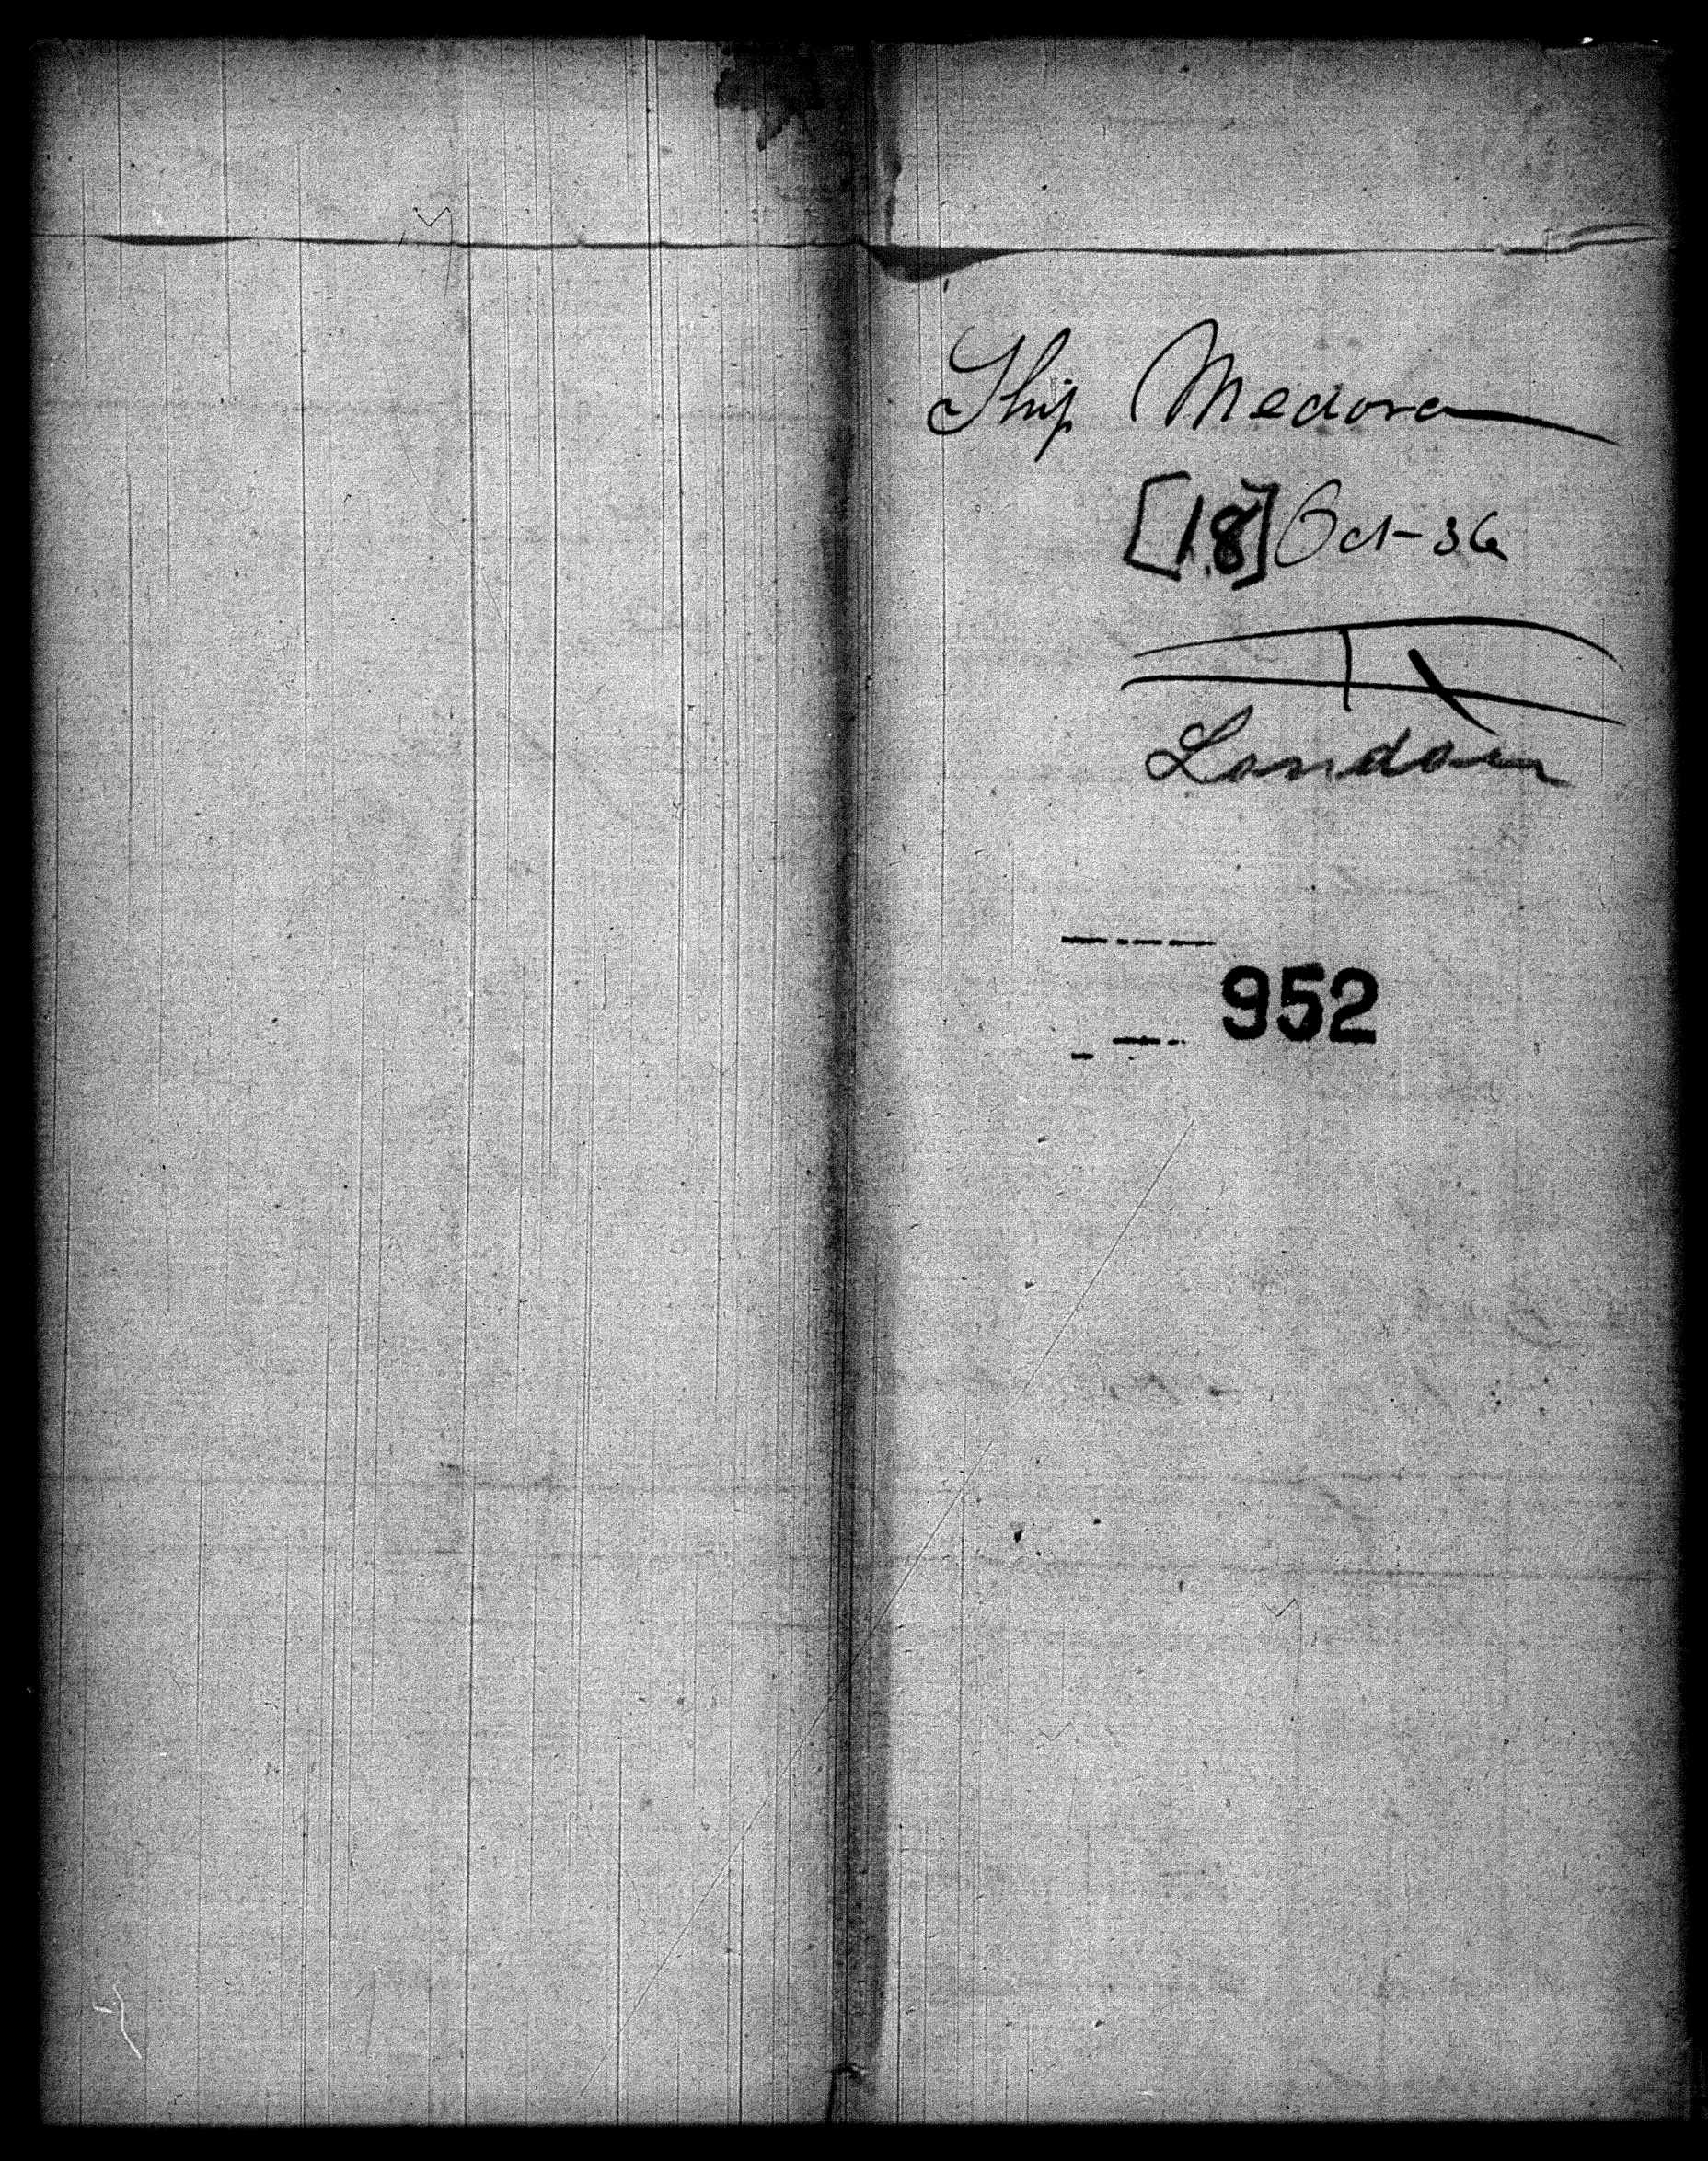 Ship Medora
[18] Oct- 36
London
952